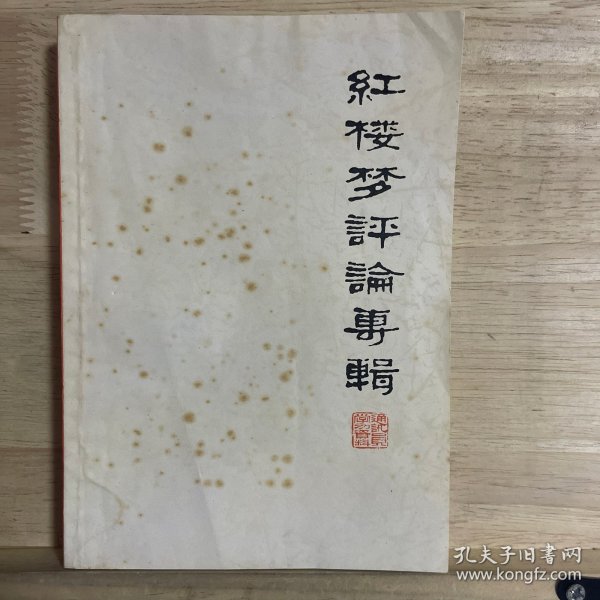 紅楼梦評論專輯
孔夫子旧书网
www.kongfz.com